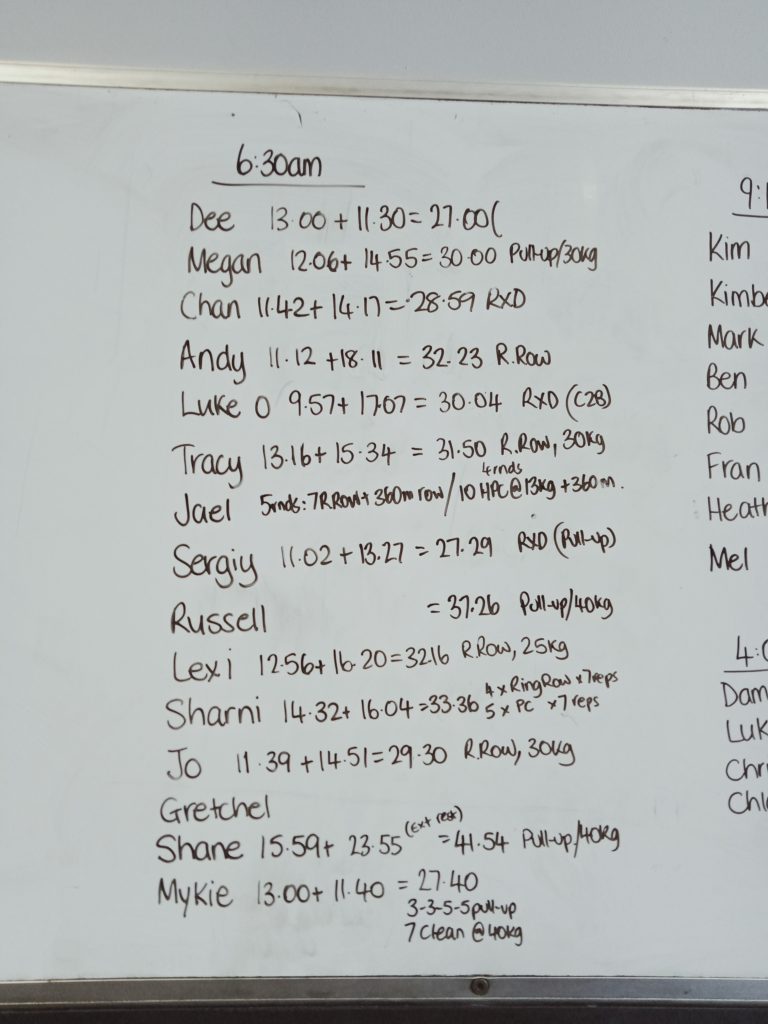 6:30am
Dee 13.00 + 11.30 = 27.00(
Megan 12.06 + 14.55 = 30.00 Pull-up/30kg
Chan 11.42 + 14.17 = 28.59 RXD
Andy 11.12 + 18.11 = 32.23 R.Row
Luke O 9.57 + 17.07 = 30.04 RXD (C2B)
Tracy 13.16 + 15.34 = 31.50 R.Row, 30kg
4rnds
Jael 5rnds: 7 R.Row + 360m row / 10 HPC @ 13kg + 360m.
Sergiy 11.02 + 13.27 = 27.29 RXD (Pull-up)
Russell = 37.26 Pull-up/40kg
Lexi 12.56 + 16.20 = 32.16 R.Row, 25kg
Sharni 14.32 + 16.04 = 33.36 4 x Ring Row x 7 reps
5 x PC x 7 reps
Jo 11.39 + 14.51 = 29.30 R.Row, 30kg
Gretchel
Shane 15.59 + 23.55 (Ext rest) = 41.54 Pull-up/40kg
Mykie 13.00 + 11.40 = 27.40
3-3-5-5 pull-up
7 Clean @ 40kg
9:1
Kim
Kimbe
Mark
Ben
Rob
Fran
Heath
Mel
4:0
Dam
Luk
Chri
Chl